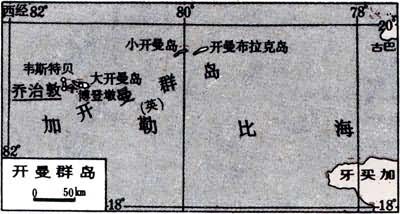 西经 82° 80° 78°
20°
古巴
小开曼岛 开曼布拉克岛
韦斯特贝 大开曼岛
乔治敦 博登墩
开曼群岛
(英)
加勒比海
82°
开曼群岛
0 50km
18° 18°
牙买加